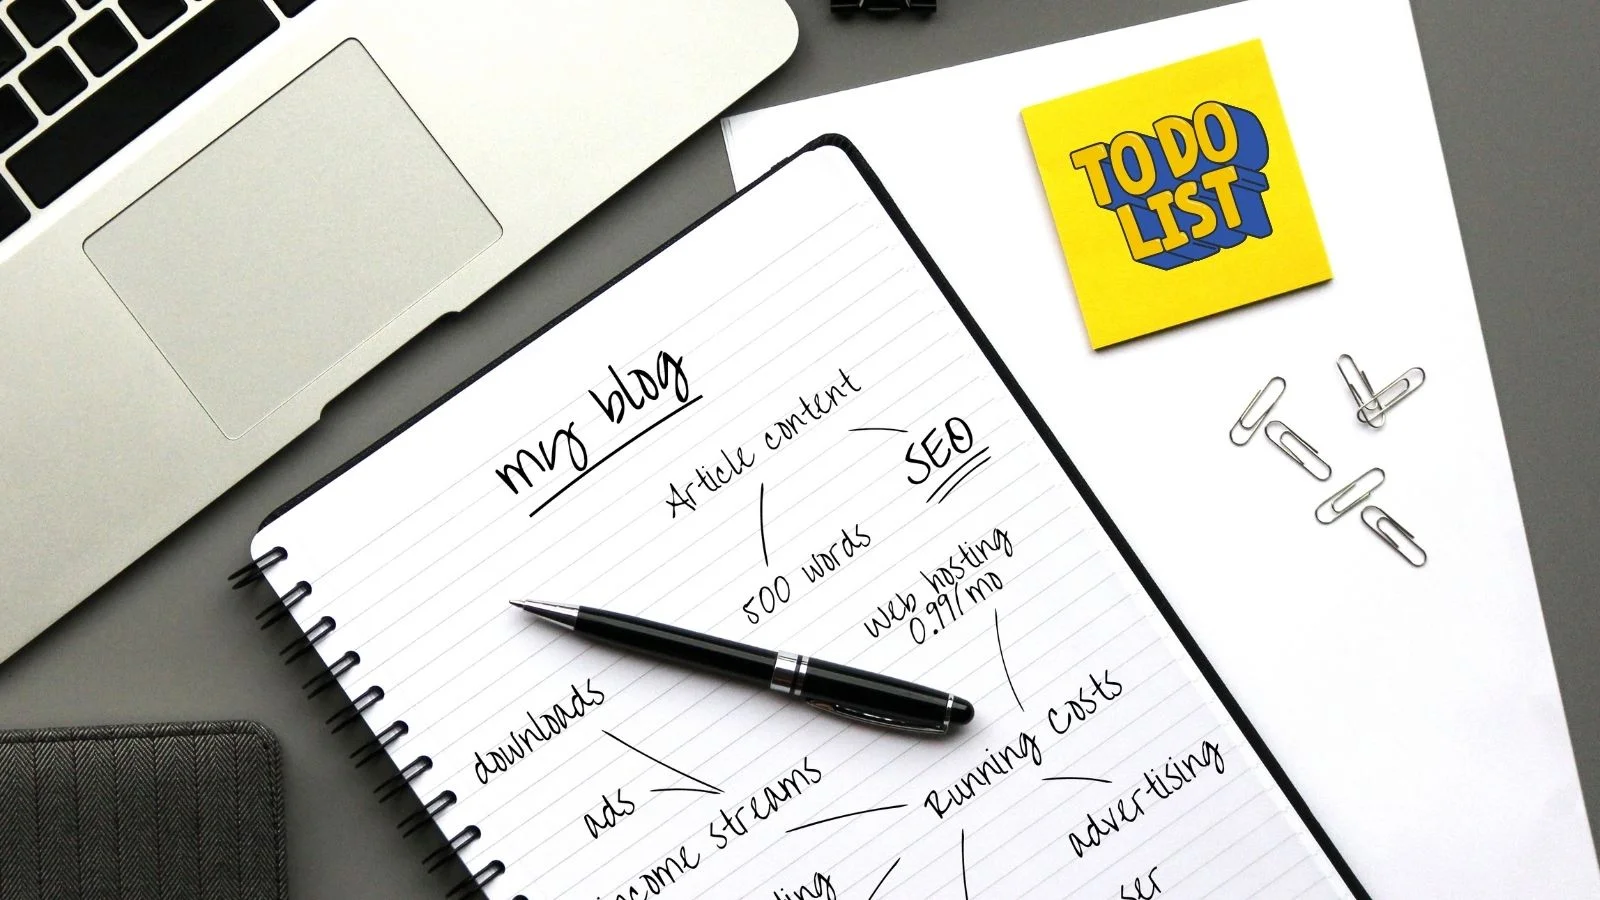 TO DO
LIST
my blog
Article content
SEO
500 words
Web hosting
0.99/mo
downloads
ads
income streams
Running costs
advertising